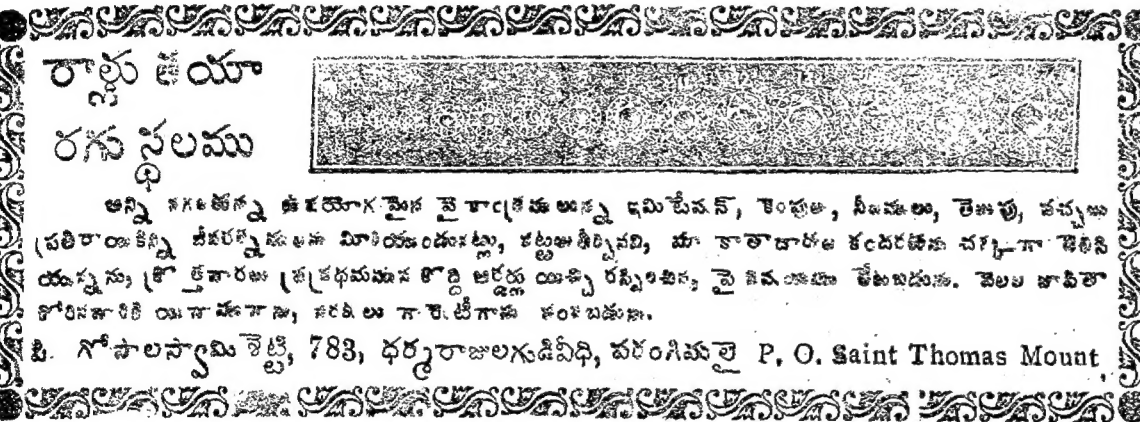 రాళ్లు తయా
రగు స్థలము
అన్ని నగలకున్న ఉపయోగమైన పై రాంక్రమ లున్న ఇమిటేషన్, కెంపులు, నీలములు, తెలుపు, పచ్చలు
ప్రతిరాయికిన్ని జీవరత్నములను మించియుండునట్లు, కట్టుతీర్చినవి, మా ఖాతాదారుల కందరకును చక్కగా తెలిసి
యున్నను, క్రొత్తవారలు ప్రప్రథమమున కొద్ది ఆర్డర్లు యిచ్చి రప్పించిన, పై తేటబడును. వెలల జాపితా
కోరినవారికి యినాముగాను, సరకులు గ్యారంటీగాను పంపబడును.
పి. గోపాలస్వామి శెట్టి, 783, ధర్మరాజులగుడివీధి, పరంగిమలై P. O. Saint Thomas Mount